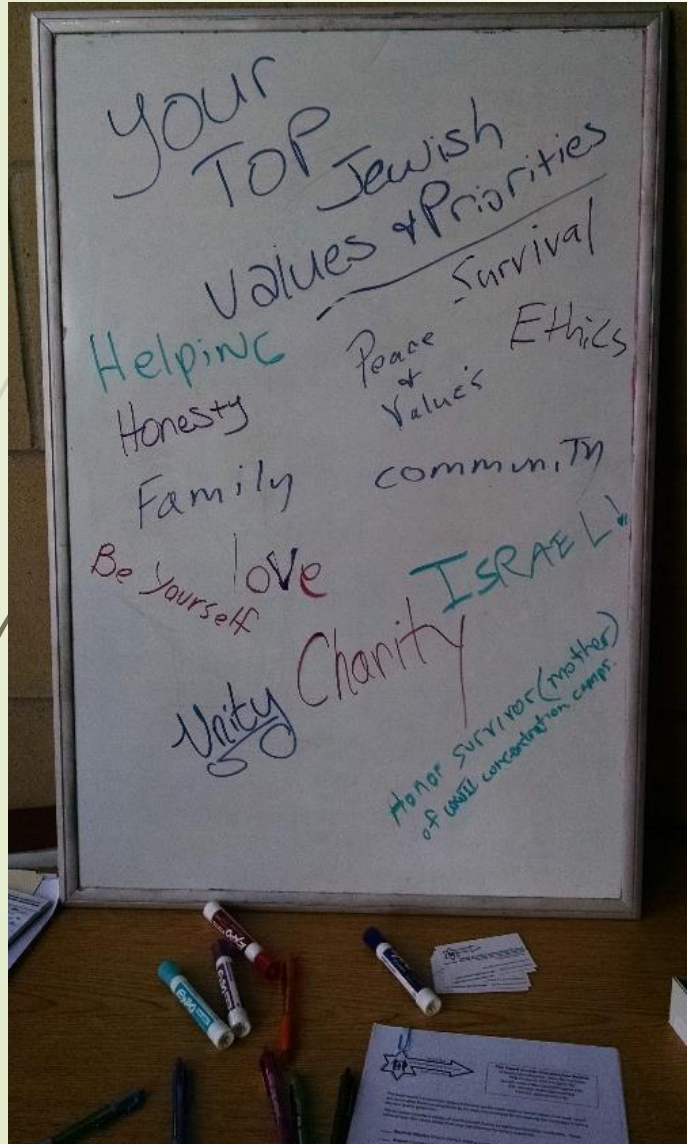 Your
TOP
Jewish
Values & Priorities
Survival
Helping
Peace
&
Value's
Ethics
Honesty
Family
community
Be Yourself
love
ISRAEL!
Charity
Unity
Honor survivor (mother)
of WWII concentration camps.
EXPO
EXPO
EXPO